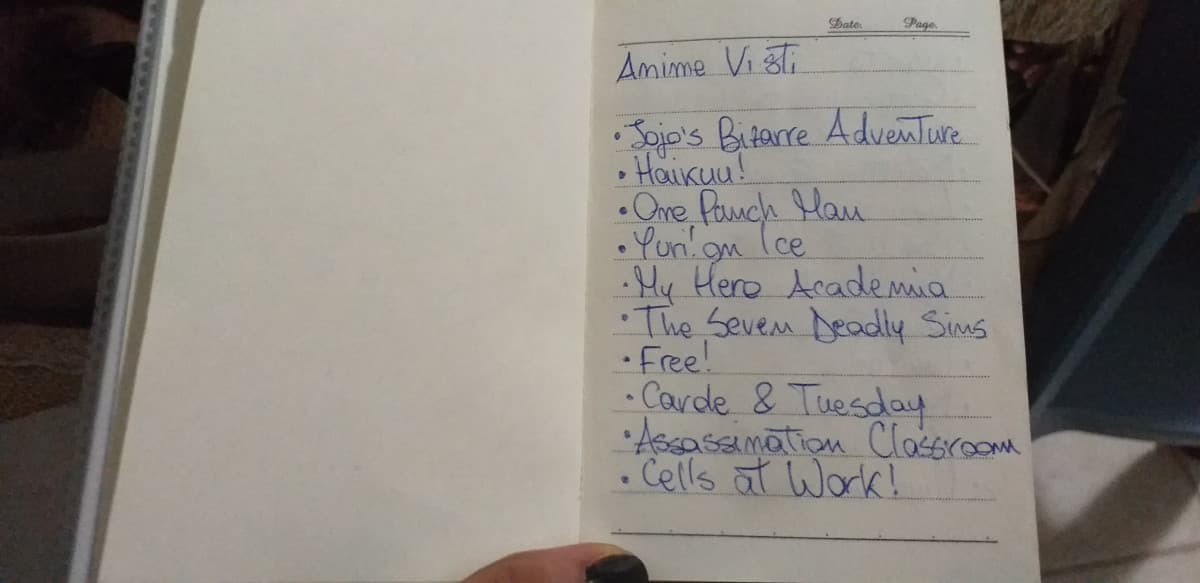 Date. Page.
Anime Visti
• Jojo's Bizarre Adventure
• Haikuu!
• One Punch Man
• Yuri! on Ice
• My Hero Academia
• The Seven Deadly Sins
• Free!
• Carole & Tuesday
• Assassination Classroom
• Cells at Work!